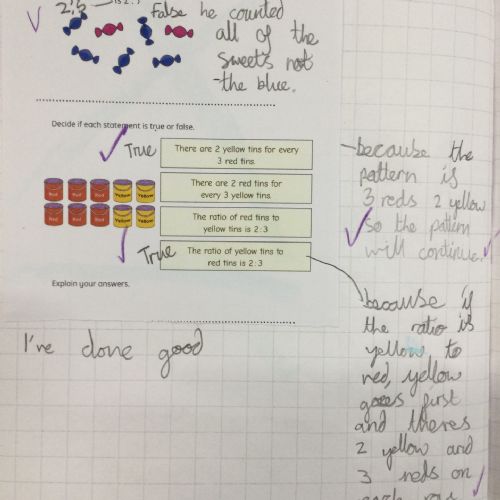 2:5
is 2:
False he counted
all of the
sweets not
the blue.
Decide if each statement is true or false.
True
There are 2 yellow tins for every
3 red tins.
There are 2 red tins for
every 3 yellow tins.
The ratio of red tins to
yellow tins is 2:3
True
The ratio of yellow tins to
red tins is 2:3
Red Red Red Yellow Yellow
Red Red Red Yellow Yellow
Explain your answers.
because the
pattern is
3 reds 2 yellow
so the pattern
will continue
because if
the ratio is
yellow to
red, yellow
goes first
and theres
2 yellow and
3 reds on
each row
I've done good